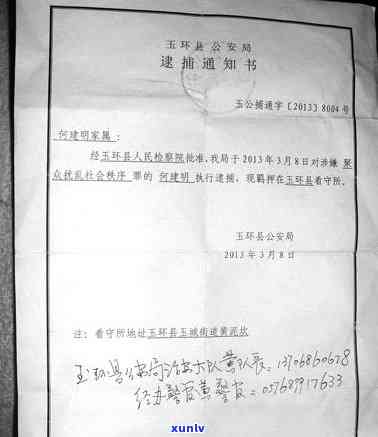 玉环县公安局
逮捕通知书
玉公捕通字〔2013〕8004号
何建明家属：
经玉环县人民检察院批准，我局于2013年3月8日对涉嫌 聚
众扰乱社会秩序 罪的 何建明 执行逮捕，现羁押在玉环县看守所。
玉环县公安局
2013年3月8日
注：看守所地址玉环县玉城街道黄泥坎
玉环县公安局治安大队黄队长：13706860678
经办警官黄警官：057689917633
xunlv